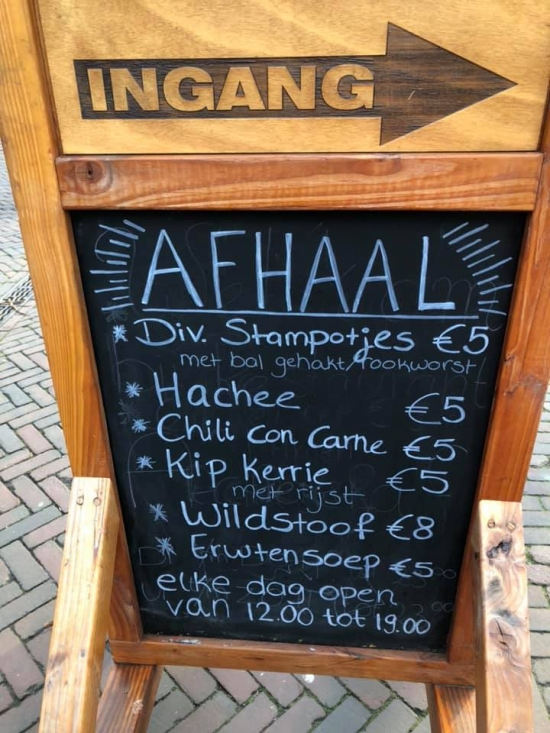 INGANG
AFHAAL
* Div. Stampotjes €5
met bal gehakt/rookworst
* Hachee €5
* Chili con Carne €5
* Kip Kerrie €5
met rijst
* Wildstoof €8
* Erwtensoep €5
elke dag open
van 12.00 tot 19.00